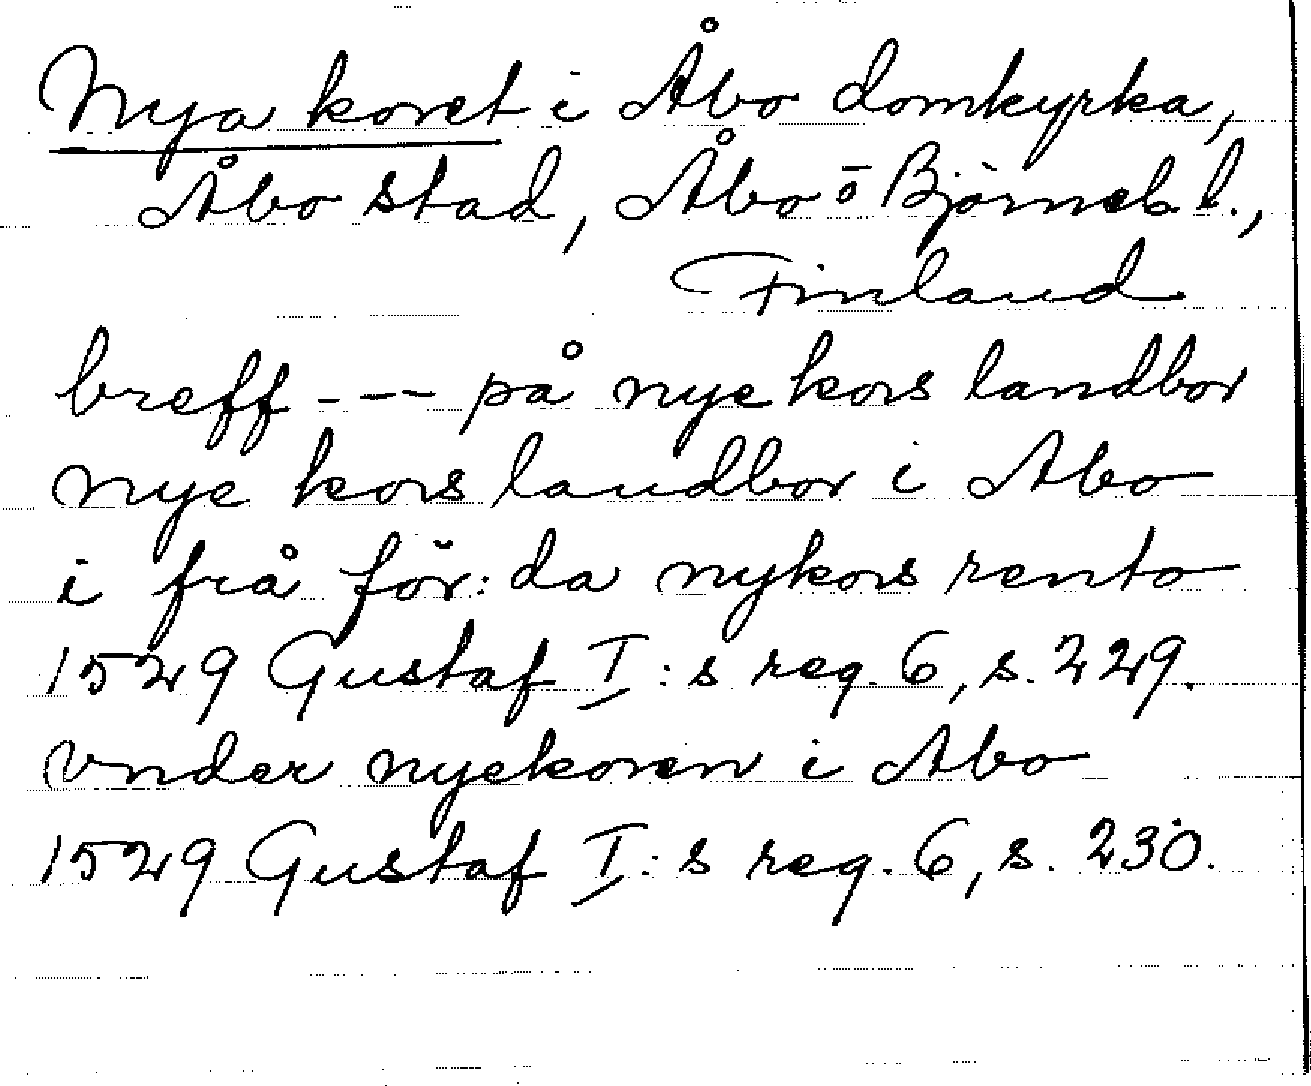 Nya koret i Åbo domkyrka,
Åbo stad, Åbo o Björneb. l.,
Finland
breff --- på nye kors landbor
nye kors landbor i Abo
i frå för:da nykors rento
1529 Gustaf I:s reg. 6, s. 229.
vnder nyekoren i Abo
1529 Gustaf I:s reg. 6, s. 230.